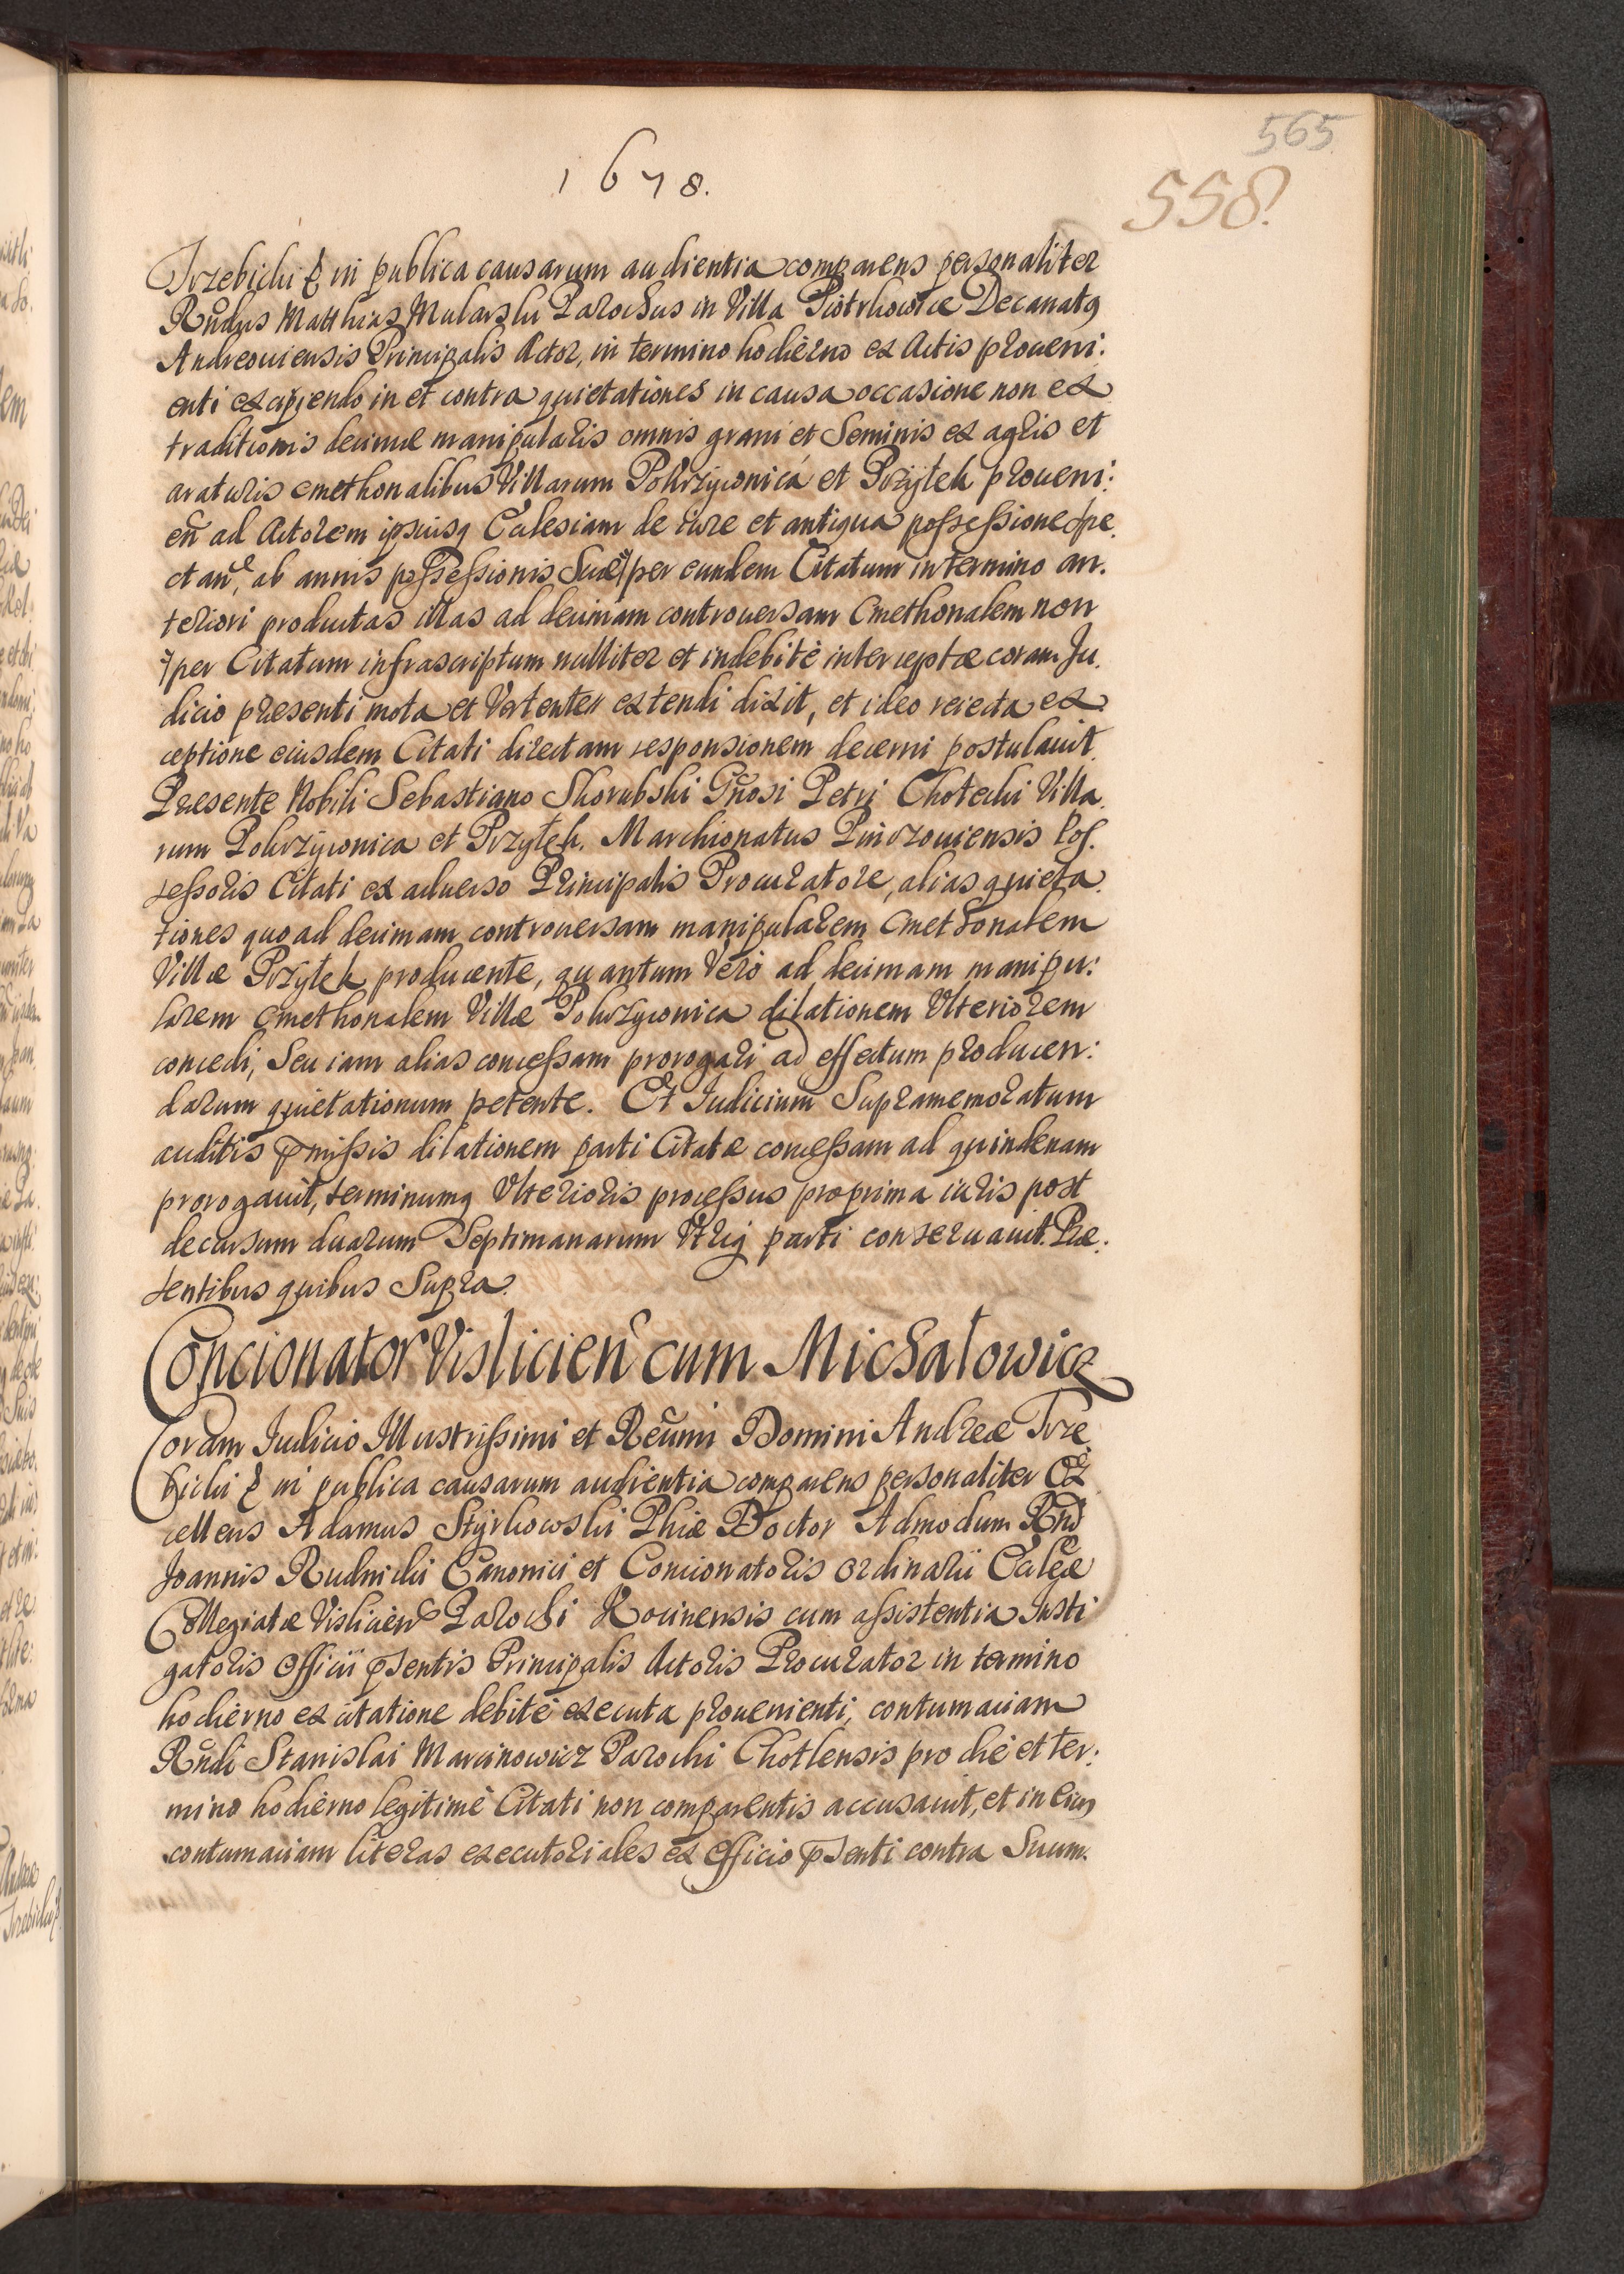 565
1678.
558.
Trzebicki & in publica causarum audientia comparens personaliter
Rndus Matthias Mularski Parochus in Villa Piotrkowice Decanatq
Andreouiensis Principalis Actor, in termino hodierno ex Actis proueni:
enti excipiendo in et contra quietationes in causa occasione non ex
traditionis decimæ manipularis omnis grani et Seminis ex agris et
araturis cmethonalibus Villarum Pokrzywnica et Przÿtek proueni:
eñ ad Actorem ipsiusq Ecclesiam de iure et antiqua possessione spe
ctañ, ab annis possessionis Suæ # per eundem Citatum in termino an.
teriori productas illas ad decimam controuersam Cmethonalem non
# per Citatum infrascriptum nulliter et indebitè interceptæ coram Ju.
dicio presenti mota et Vertente // extendi dixit, et ideo reiecta ex
ceptione eiusdem Citati directam responsionem decerni postulauit.
Presente Nobili Sebastiano Skorubski Gñosi Petri Chotecki Villa.
rum Pokrzywnica et Przytek. Marchionatus Pinczouiensis Pos.
sessoris Citati ex aduerso Principalis Procuratore, alias quieta.
tiones quo ad decimam controuersam manipularem Cmethonalem
Villæ Przytek producente, quantum Verò ad decimam manipu:
larem cmethonalem Villæ Pokrzywnica dilationem Vlteriorem
concedi, Seu iam alias concessam prorogari ad effectum producen:
darum quietationum petente. Et Iudicium Supramemoratum
auditis pmissis dilationem parti Citatæ concessam ad quindenam
prorogauit, terminumq Vlterioris processus pro prima iuris post
decursum duarum Septimanarum Vtriq parti conseruauit. Præ:
sentibus quibus Supra.
Concionator Vislicień cum Michałowicz
Coram Iudicio Illustrissimi et Reūmi Domini Andreæ Trze
bicki & in publica causarum audientia comparens personaliter Ex
cellens Adamus Styrkowski Phiæ Doctor Admodum Rndi
Joannis Rudnicki Canonici et Concionatoris ordinarii Eccleæ
Collegiatæ Vislicień Parochi Rocinensis cum assistentia Insti
gatoris officii psentis Principalis Actoris Procurator in termino
hodierno ex citatione debitè executa prouenienti, contumaciam
Rndi Stanislai Marcinowicz Parochi Chotlensis pro die et ter:
mino hodierno legitimè Citati non comparentis accusauit, et in eius
contumaciam literas executoriales ex officio psenti contra Suum.